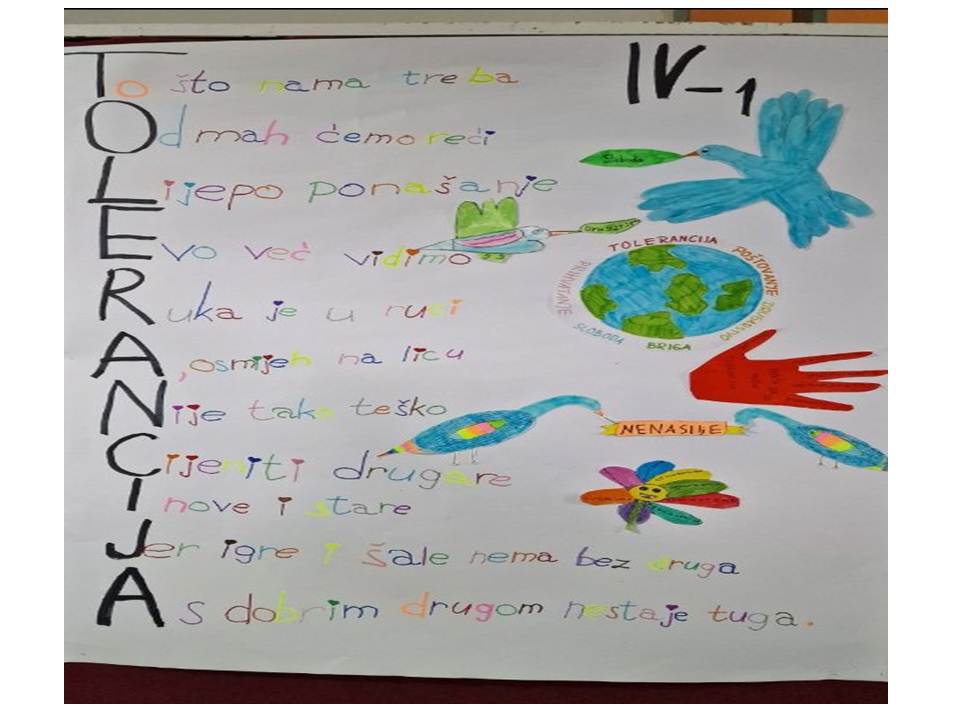 To što nama treba
IV-1
Odmah ćemo reći
Sloboda
Lijepo ponašanje
Evo već vidimo
TOLERANCIJA
POŠTOVANJE
PRIHVATANJE
SLOBODA
BRIGA
Ruka je u ruci
A, osmijeh na licu
Nije tako teško
NENASILJE
Cijeniti drugare
I nove i stare
Jer igre i šale nema bez druga
A s dobrim drugom nestaje tuga.